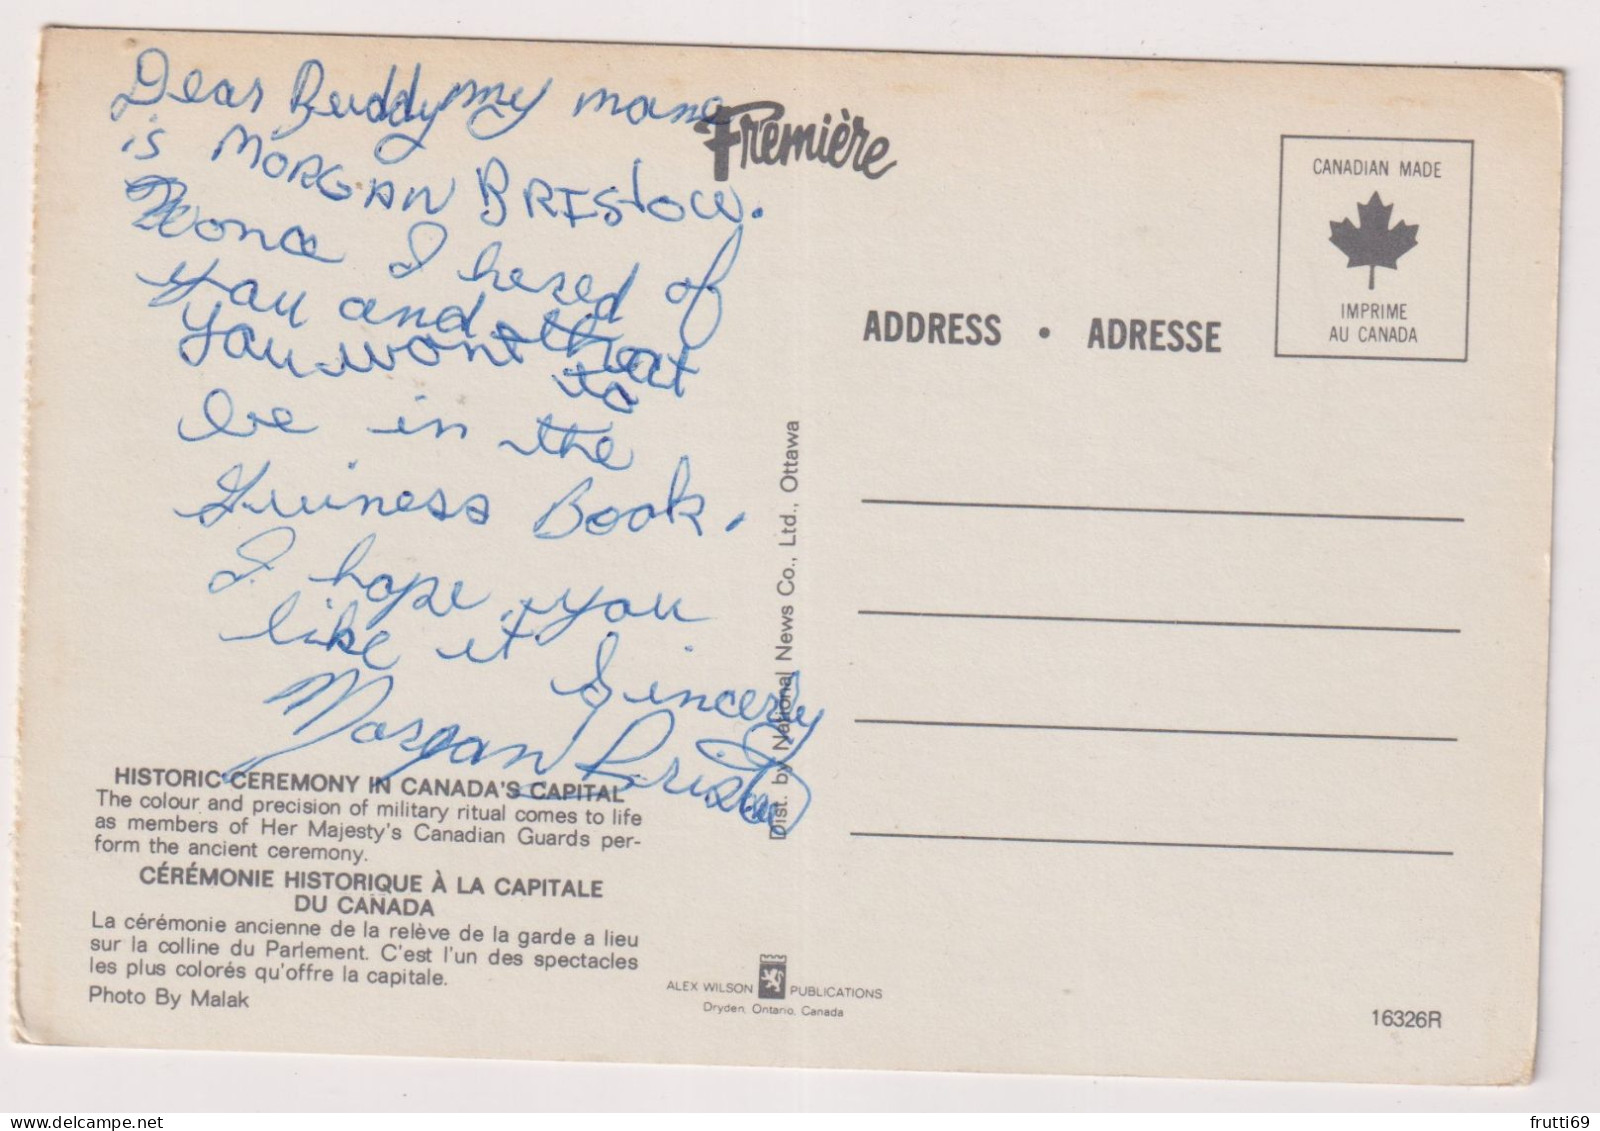 Dear Buddy my mane
is MORGAN BRIStOW.
wonce I hered of
you and that
you wont to
be in the
Guiness Book.
I hope you
like it
Sincerly
Morgan Bristow
Première
CANADIAN MADE
IMPRIME
AU CANADA
ADDRESS • ADRESSE
Dist. by National News Co., Ltd., Ottawa
HISTORIC CEREMONY IN CANADA'S CAPITAL
The colour and precision of military ritual comes to life
as members of Her Majesty's Canadian Guards per-
form the ancient ceremony.
CÉRÉMONIE HISTORIQUE À LA CAPITALE
DU CANADA
La cérémonie ancienne de la relève de la garde a lieu
sur la colline du Parlement. C'est l'un des spectacles
les plus colorés qu'offre la capitale.
Photo By Malak
ALEX WILSON PUBLICATIONS
Dryden, Ontario, Canada
16326R
frutti69
delcampe.net